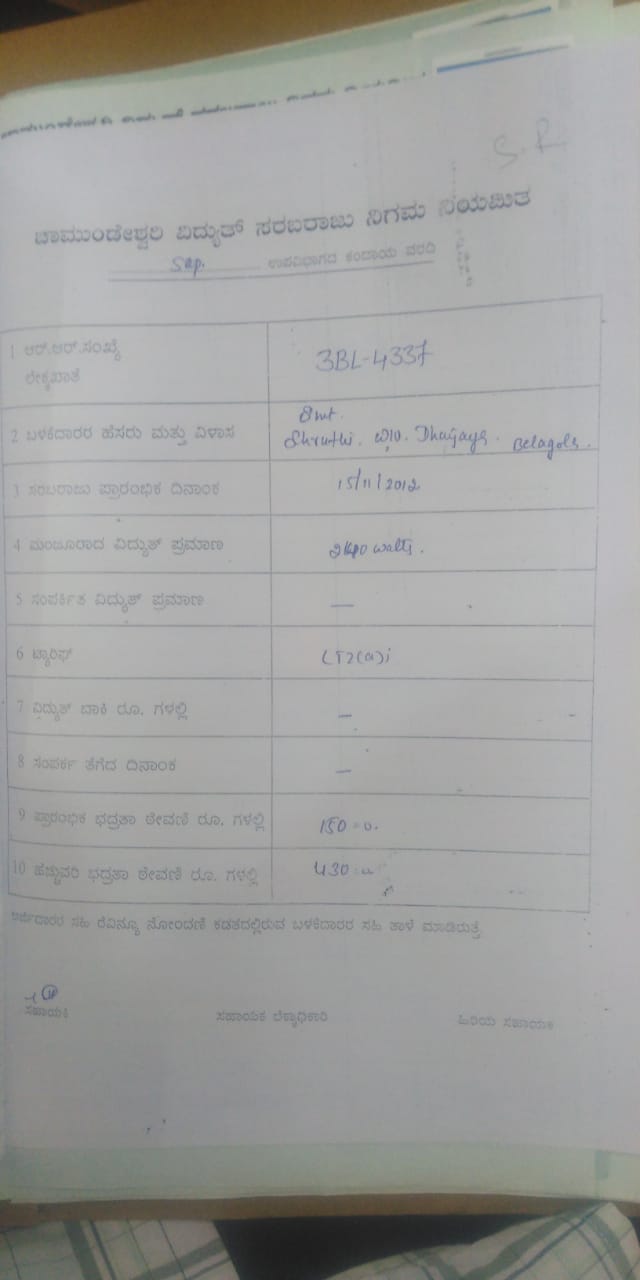 S.R
ಚಾಮುಂಡೇಶ್ವರಿ ವಿದ್ಯುತ್ ಸರಬರಾಜು ನಿಗಮ ನಿಯಮಿತ
ಉಪವಿಭಾಗದ ಕಂದಾಯ ವರದಿ
1 ಆರ್.ಆರ್.ಸಂಖ್ಯೆ 3BL-4337
ಲೆಕ್ಕಖಾತೆ
2 ಬಳಕೆದಾರರ ಹೆಸರು ಮತ್ತು ವಿಳಾಸ Smt.
Shruthi. w/o. Belagola.
3 ಸರಬರಾಜು ಪ್ರಾರಂಭಿಕ ದಿನಾಂಕ 15/11/2012
4 ಮಂಜೂರಾದ ವಿದ್ಯುತ್ ಪ್ರಮಾಣ watts.
5 ಸಂಪರ್ಕಿತ ವಿದ್ಯುತ್ ಪ್ರಮಾಣ —
6 ಟ್ಯಾರಿಫ್ LT2(a)i
7 ವಿದ್ಯುತ್ ಬಾಕಿ ರೂ. ಗಳಲ್ಲಿ —
8 ಸಂಪರ್ಕ ತೆಗೆದ ದಿನಾಂಕ —
9 ಪ್ರಾರಂಭಿಕ ಭದ್ರತಾ ಠೇವಣಿ ರೂ. ಗಳಲ್ಲಿ 150=0.
10 ಹೆಚ್ಚುವರಿ ಭದ್ರತಾ ಠೇವಣಿ ರೂ. ಗಳಲ್ಲಿ 430=0
ಅರ್ಜಿದಾರರ ಸಹಿ ರೆವಿನ್ಯೂ ನೋಂದಣಿ ಕಡತದಲ್ಲಿರುವ ಬಳಕೆದಾರರ ಸಹಿ ತಾಳೆ ಮಾಡಿರುತ್ತೆ
ಸಹಾಯಕ ಸಹಾಯಕ ಲೆಕ್ಕಾಧಿಕಾರಿ ಹಿರಿಯ ಸಹಾಯಕ